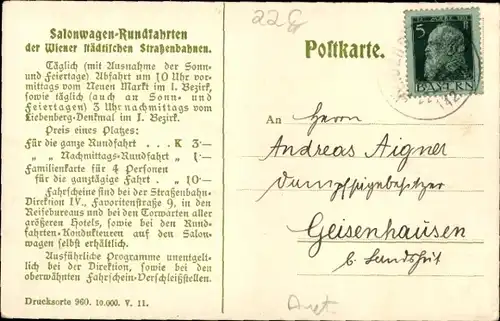 Salonwagen-Rundfahrten
der Wiener städtischen Straßenbahnen.
Täglich (mit Ausnahme der Sonn-
und Feiertage) Abfahrt um 10 Uhr vor-
mittags vom Neuen Markt im I. Bezirk,
sowie täglich (auch an Sonn- und
Feiertagen) 3 Uhr nachmittags vom
Liebenberg-Denkmal im I. Bezirk.
Preis eines Platzes:
Für die ganze Rundfahrt . . . K 3·—
„ „ Nachmittags-Rundfahrt „ 1·—
Familienkarte für 4 Personen
für die ganztägige Fahrt . „ 10·—
Fahrscheine sind bei der Straßenbahn-
Direktion IV., Favoritenstraße 9, in den
Reisebureaus und bei den Torwarten aller
größeren Hotels, sowie bei den Rund-
fahrten-Kondukteuren auf den Salon-
wagen selbst erhältlich.
Ausführliche Programme unentgelt-
lich bei der Direktion, sowie bei den
oberwähnten Fahrschein-Verschleißstellen.
Drucksorte 960. 10.000. V. 11.
228
Postkarte.
5
BAYERN
An Herrn
Andreas Aigner
Dampfsägebesitzer
Geisenhausen
b. Landshut